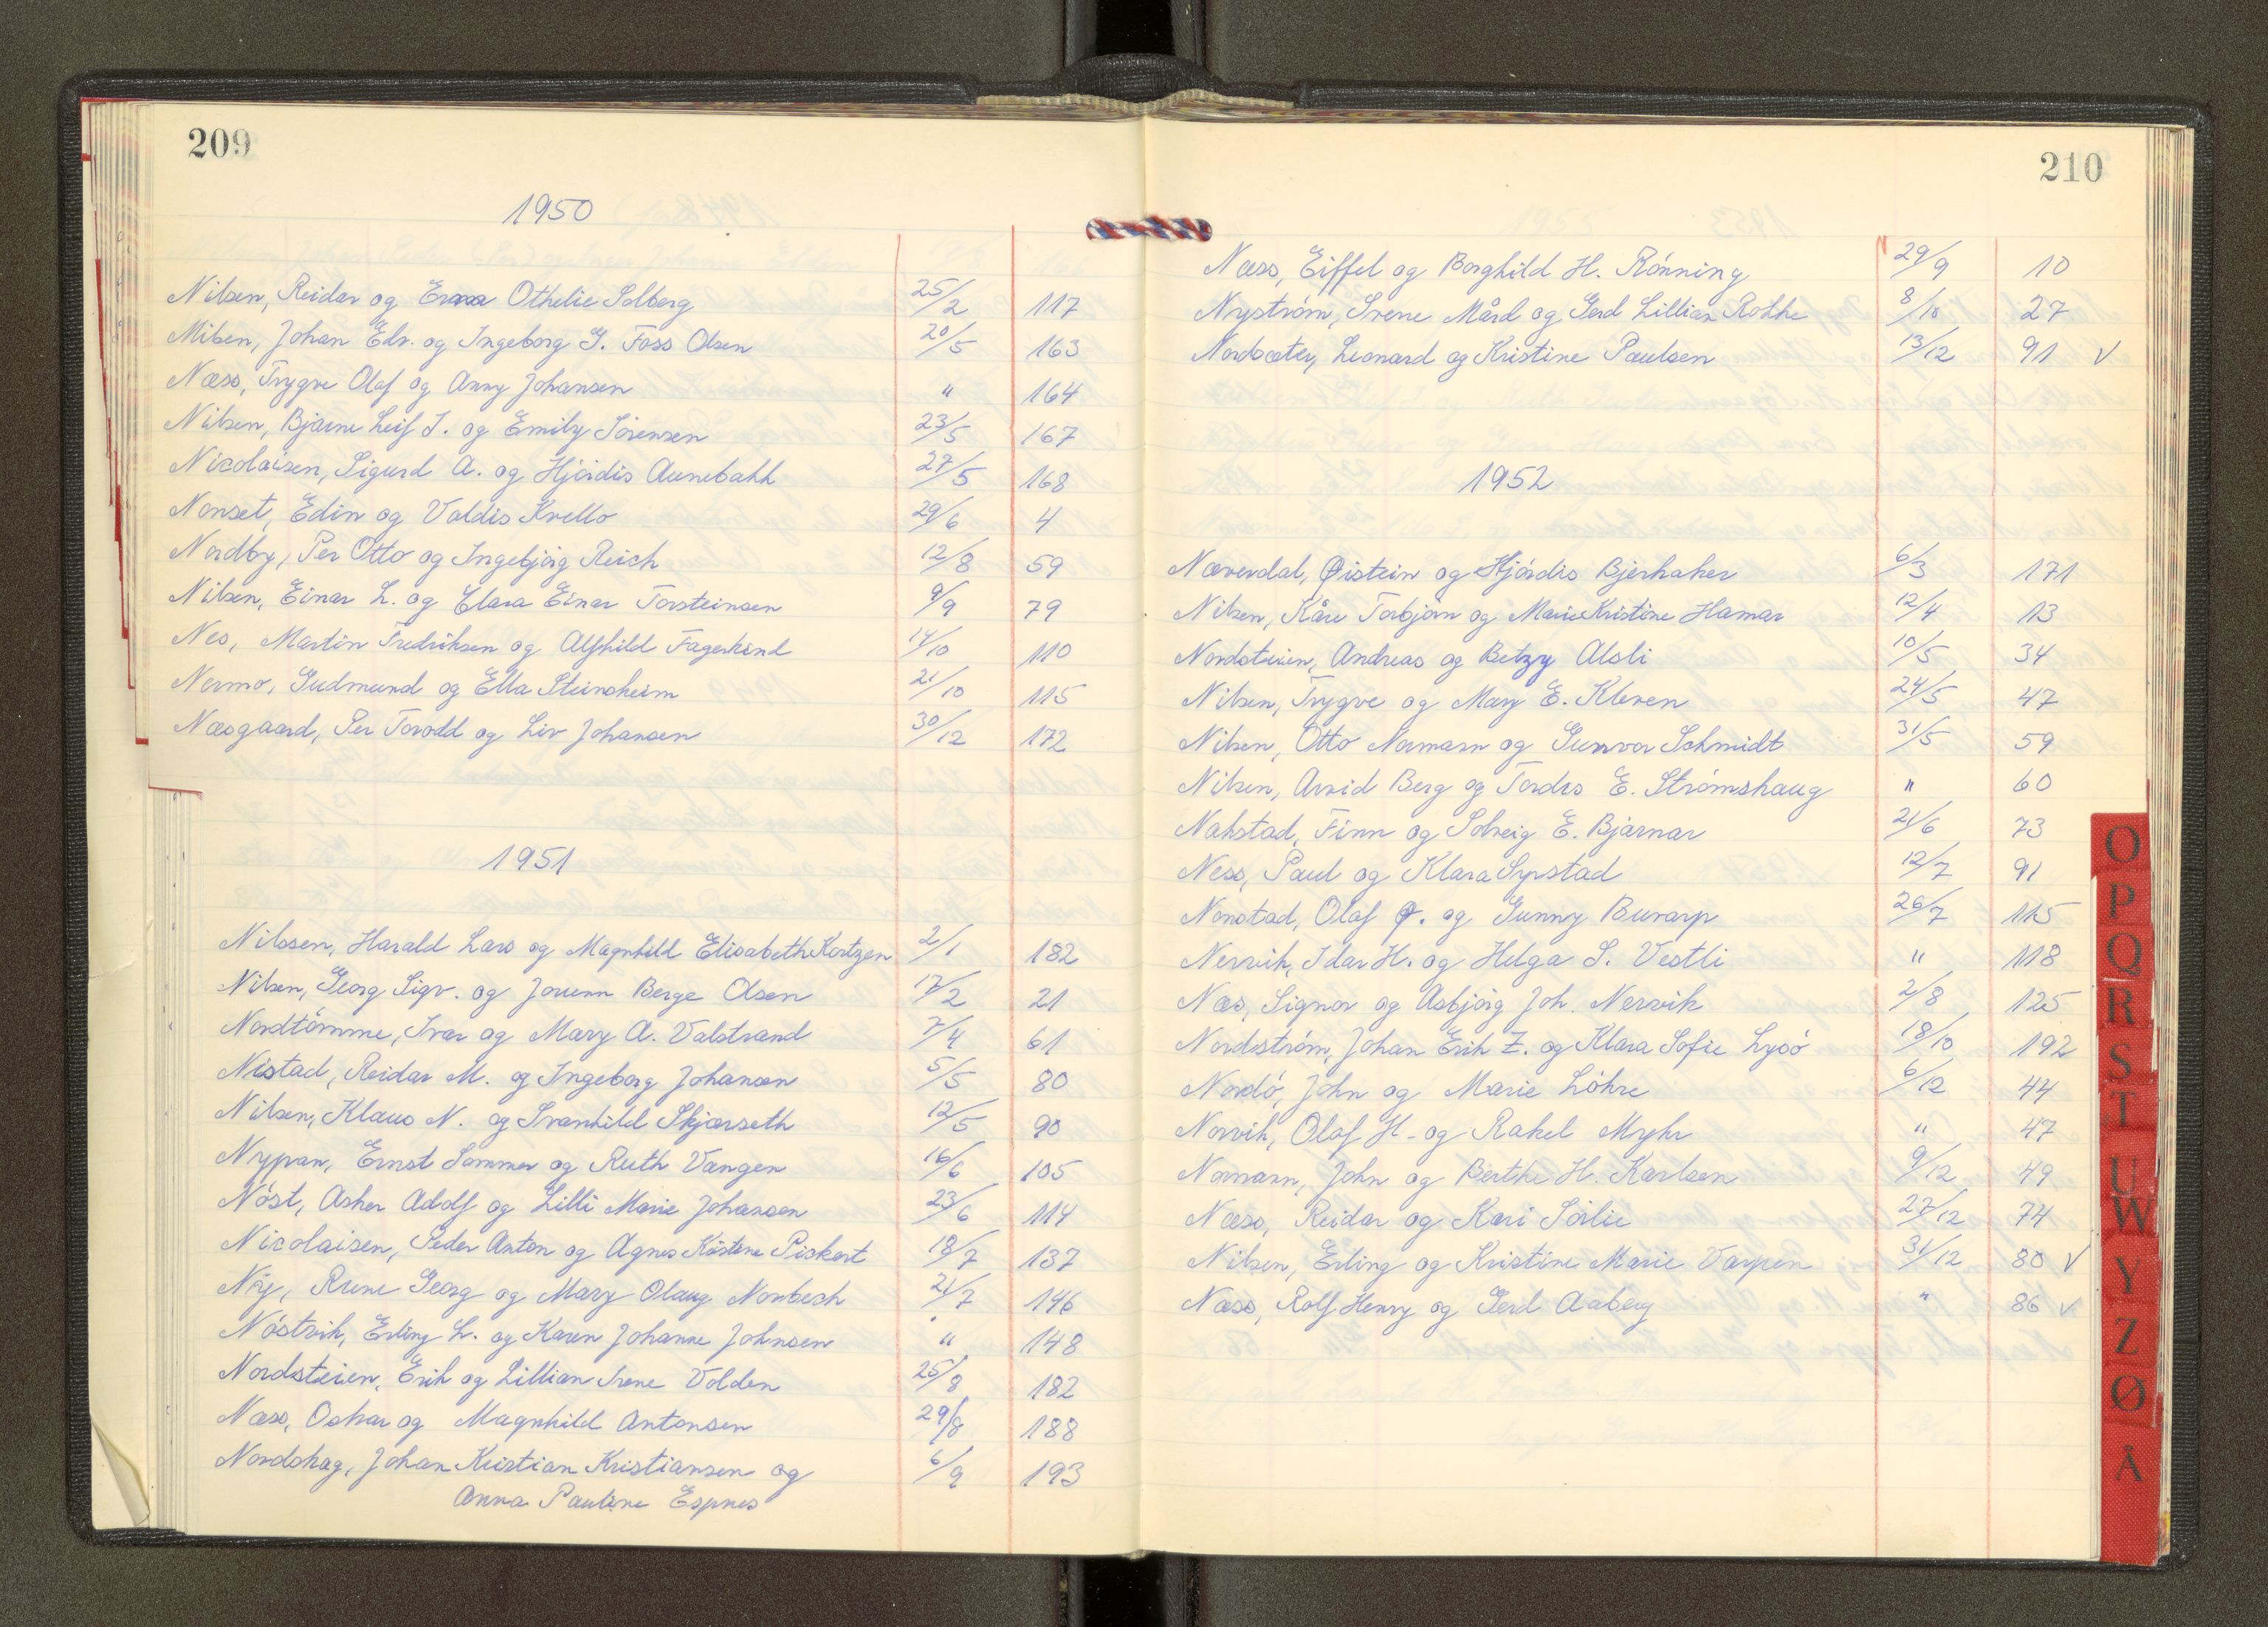 209
1950
Nilsen, Reidar og Erna Othelie Solberg 25/2 117
Nilsen, Johan Edv. og Ingeborg G. Foss Olsen 20/5 163
Næss, Trygve Olaf og Anny Johansen " 164
Nilsen, Bjarne Leif J. og Emily Sörensen 23/5 167
Nicolaisen, Sigurd A. og Hjördis Aunebakk 27/5 168
Nonset, Edin og Valdis Krello 29/6 4
Nordby, Per Otto og Ingebjörg Reich 12/8 59
Nilsen, Einar L. og Clara Einar Torsteinsen 9/9 79
Nes, Martin Fredriksen og Alfhild Fagerkind 14/10 110
Nermo, Gudmund og Ella Steinsheim 21/10 115
Næsgaard, Per Torodd og Liv Johansen 30/12 172
1951
Nilssen, Harald Lars og Magnhild Elisabeth Kortgen 2/1 182
Nilsen, Georg Sigv. og Jorunn Berge Olsen 17/2 21
Nordtömme, Ivar og Mary A. Valstrand 7/4 61
Nistad, Reidar M. og Ingeborg Johansen 5/5 80
Nilsen, Klaus N. og Svanhild Skjærseth 12/5 90
Nypan, Ernst Sommer og Ruth Vangen 16/6 105
Nöst, Asker Adolf og Lilli Marie Johansen 23/6 114
Nicolaisen, Peder Anton og Agnes Kristine Pickert 18/7 137
Ny, Rune Georg og Mary Olaug Nonbech 21/7 146
Nöstvik, Erling L. og Karen Johanne Johnsen " 148
Nordsteien, Erik og Lillian Irene Volden 25/8 182
Næss, Oskar og Magnhild Antonsen 29/8 188
Nordshag, Johan Kristian Kristiansen og 6/9 193
Anna Pauline Espnes
210
Næss, Eiffel og Borghild H. Rönning 29/9 10
Nyström, Svene Mård og Gerd Lillian Rothe 8/10 27
Nordsæter, Leonard og Kristine Paulsen 13/12 91 V
1952
Næverdal, Øistein og Hjördis Bjerkaker 6/3 171
Nilsen, Kåre Torbjörn og Marie Kristine Hamar 12/4 13
Nordsteien, Andreas og Betzy Alsli 10/5 34
Nilsen, Trygve og Mary E. Kleven 24/5 47
Nilsen, Otto Normann og Gunvor Schmidt 31/5 59
Nilsen, Arvid Berg og Tordis E. Strömshaug " 60
Nakstad, Finn og Solveig E. Bjarnar 21/6 73
Ness, Paul og Klara Syrstad 12/7 91
Nonstad, Olaf Ø. og Gunny Buvarp 26/7 115
Nervik, Idar H. og Helga S. Vestli " 118
Næs, Signar og Asbjörg Joh. Nervik 2/8 125
Nordström, Johan Erik Z. og Klara Sofie Lysö 18/10 192
Nordö, John og Marie Löhre 6/12 44
Norvik, Olaf H. og Rakel Myhr " 47
Normann, John og Berthe H. Karlsen 9/12 49
Næss, Reidar og Kari Sörlie 27/12 74
Nilsen, Erling og Kristine Marie Varpen 31/12 80 V
Næss, Rolf Henry og Gerd Aaberg " 86 V
O
P
Q
R
S
T
U
W
Y
Z
Ø
Å